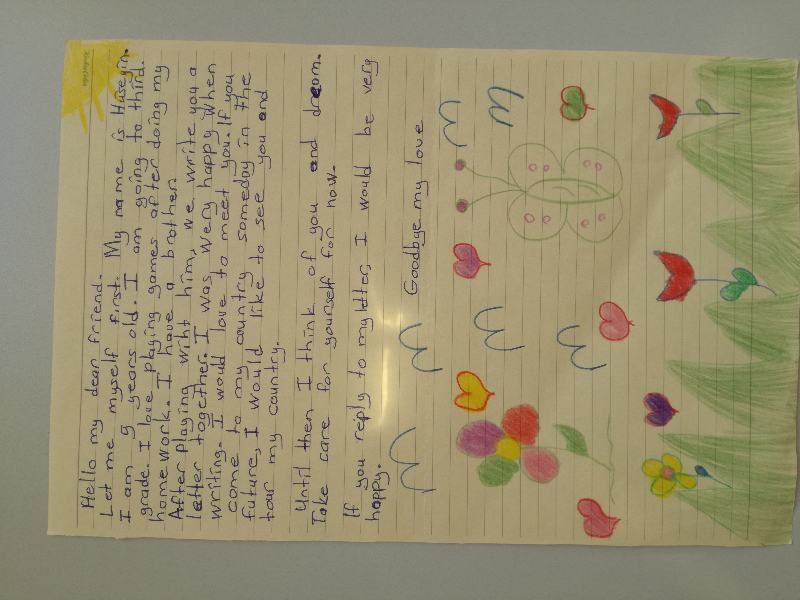 Hello my dear friend.
Let me myself first. My name is Hüseyin.
I am 9 years old. I am going to third.
grade. I love playing games after doing my
home work. I have a brother.
After playing wiht him, we write you a
letter together. I was very happy when
writing. I would love to meet you. If you
come to my country someday in the
future, I would like to see you and
tour my country.
Until then I think of you and dream.
Take care for yourself for now.
If you reply to my letter, I would be very
happy.
Goodbye my love